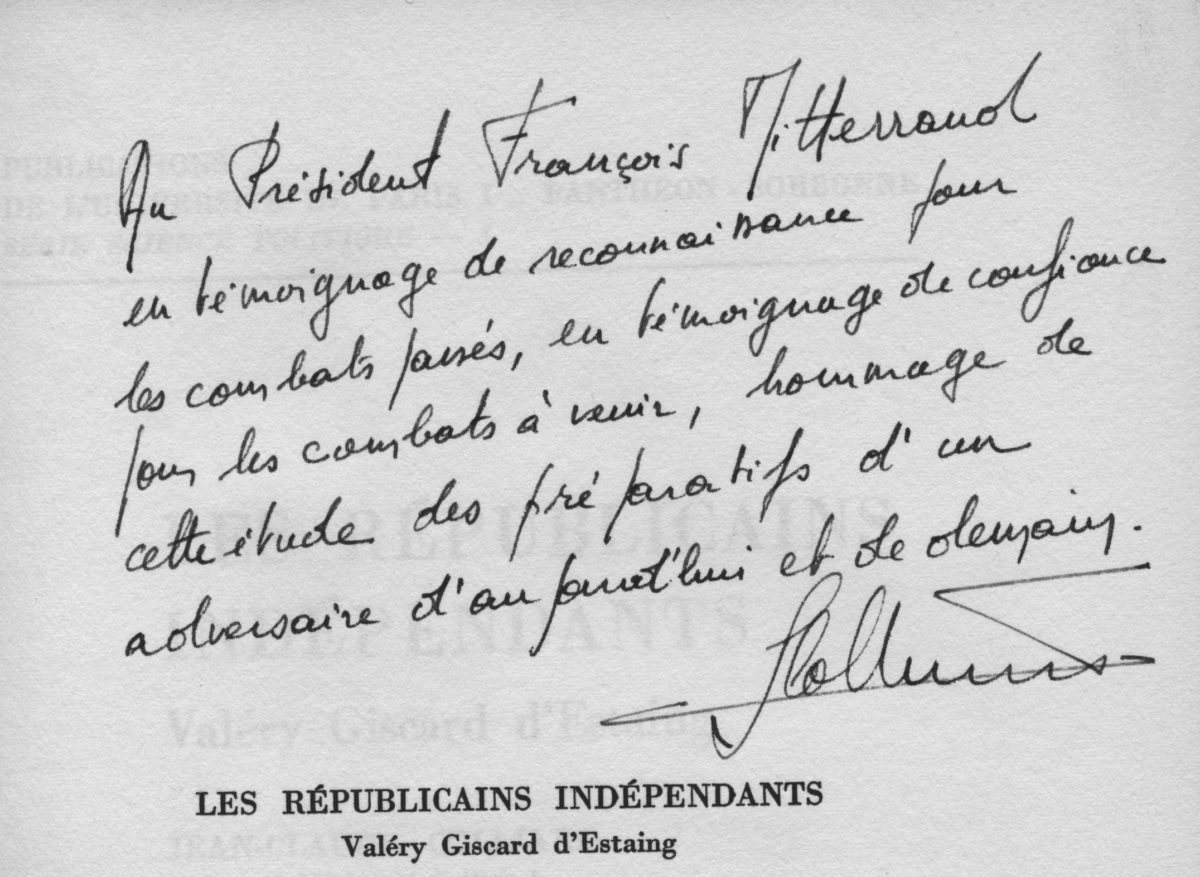 Au Président François Mitterrand
en témoignage de reconnaissance pour
les combats passés, en témoignage de confiance
pour les combats à venir, hommage de
cette étude des préparatifs d'un
adversaire d'aujourd'hui et de demain.
LES RÉPUBLICAINS INDÉPENDANTS
Valéry Giscard d'Estaing
PUBLICATIONS
DE L'UNIVERSITÉ DE PARIS I PANTHÉON-SORBONNE
SÉRIE SCIENCE POLITIQUE
LES RÉPUBLICAINS
INDÉPENDANTS
Valéry Giscard d'Estaing